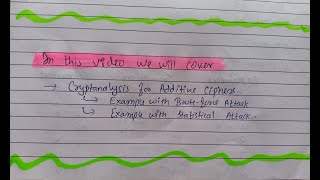 In this video we will cover
→ Cryptanalysis for Additive Ciphers
↳ Example with Brute-force Attack
↳ Example with Statistical Attack.